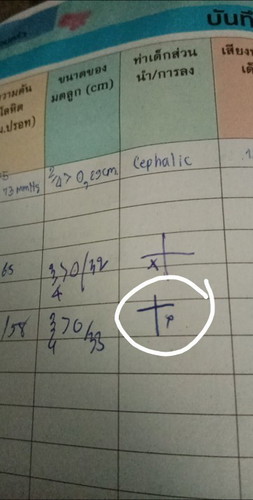 บันทึ
ความดัน
โลหิต
ม.ปรอท)
ขนาดของ
มดลูก (cm)
ท่าเด็กส่วน
นำ/การลง
เสียง
73 mmHg
2/4 > 0, 29cm
Cephalic
65
3/4 > 0/32
x
/58
3/4 > 0/33